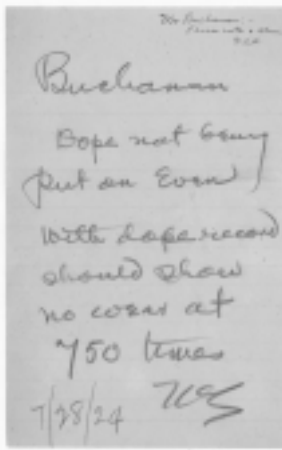 Mr Buchanan:-
Please note &
Buchanan
Dope not being
put on even
with dope record
should show
no wear at
750 times
7/28/24